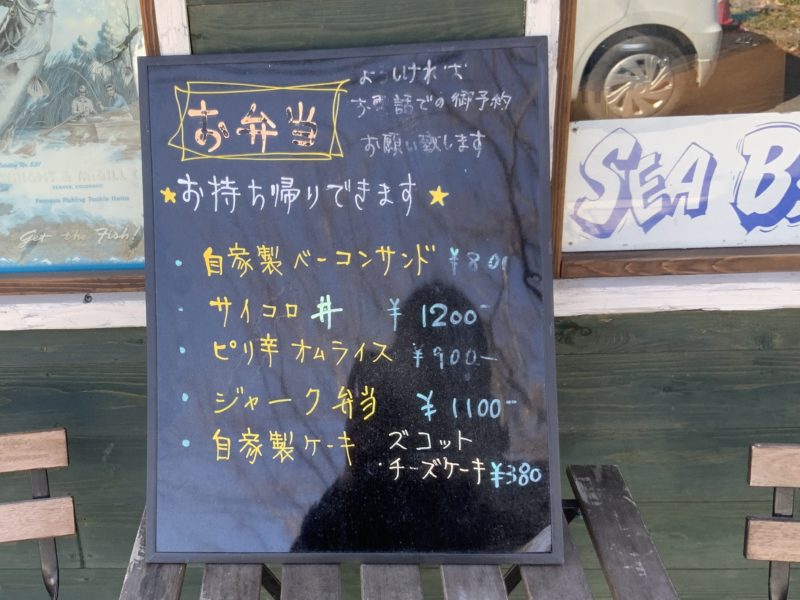 お弁当
よ いければ
お電話での御予約
お願い致します
★お持ち帰りできます★
・自家製ベーコンサンド ¥800
・サイコロ丼 ¥1200-
・ピリ辛オムライス ¥900-
・ジャーク弁当 ¥1100-
・自家製ケーキ ズコット
・チーズケーキ ¥380
SEA B
DENVER, COLORADO
Famous Fishing Tackle Home
Get the Fish!